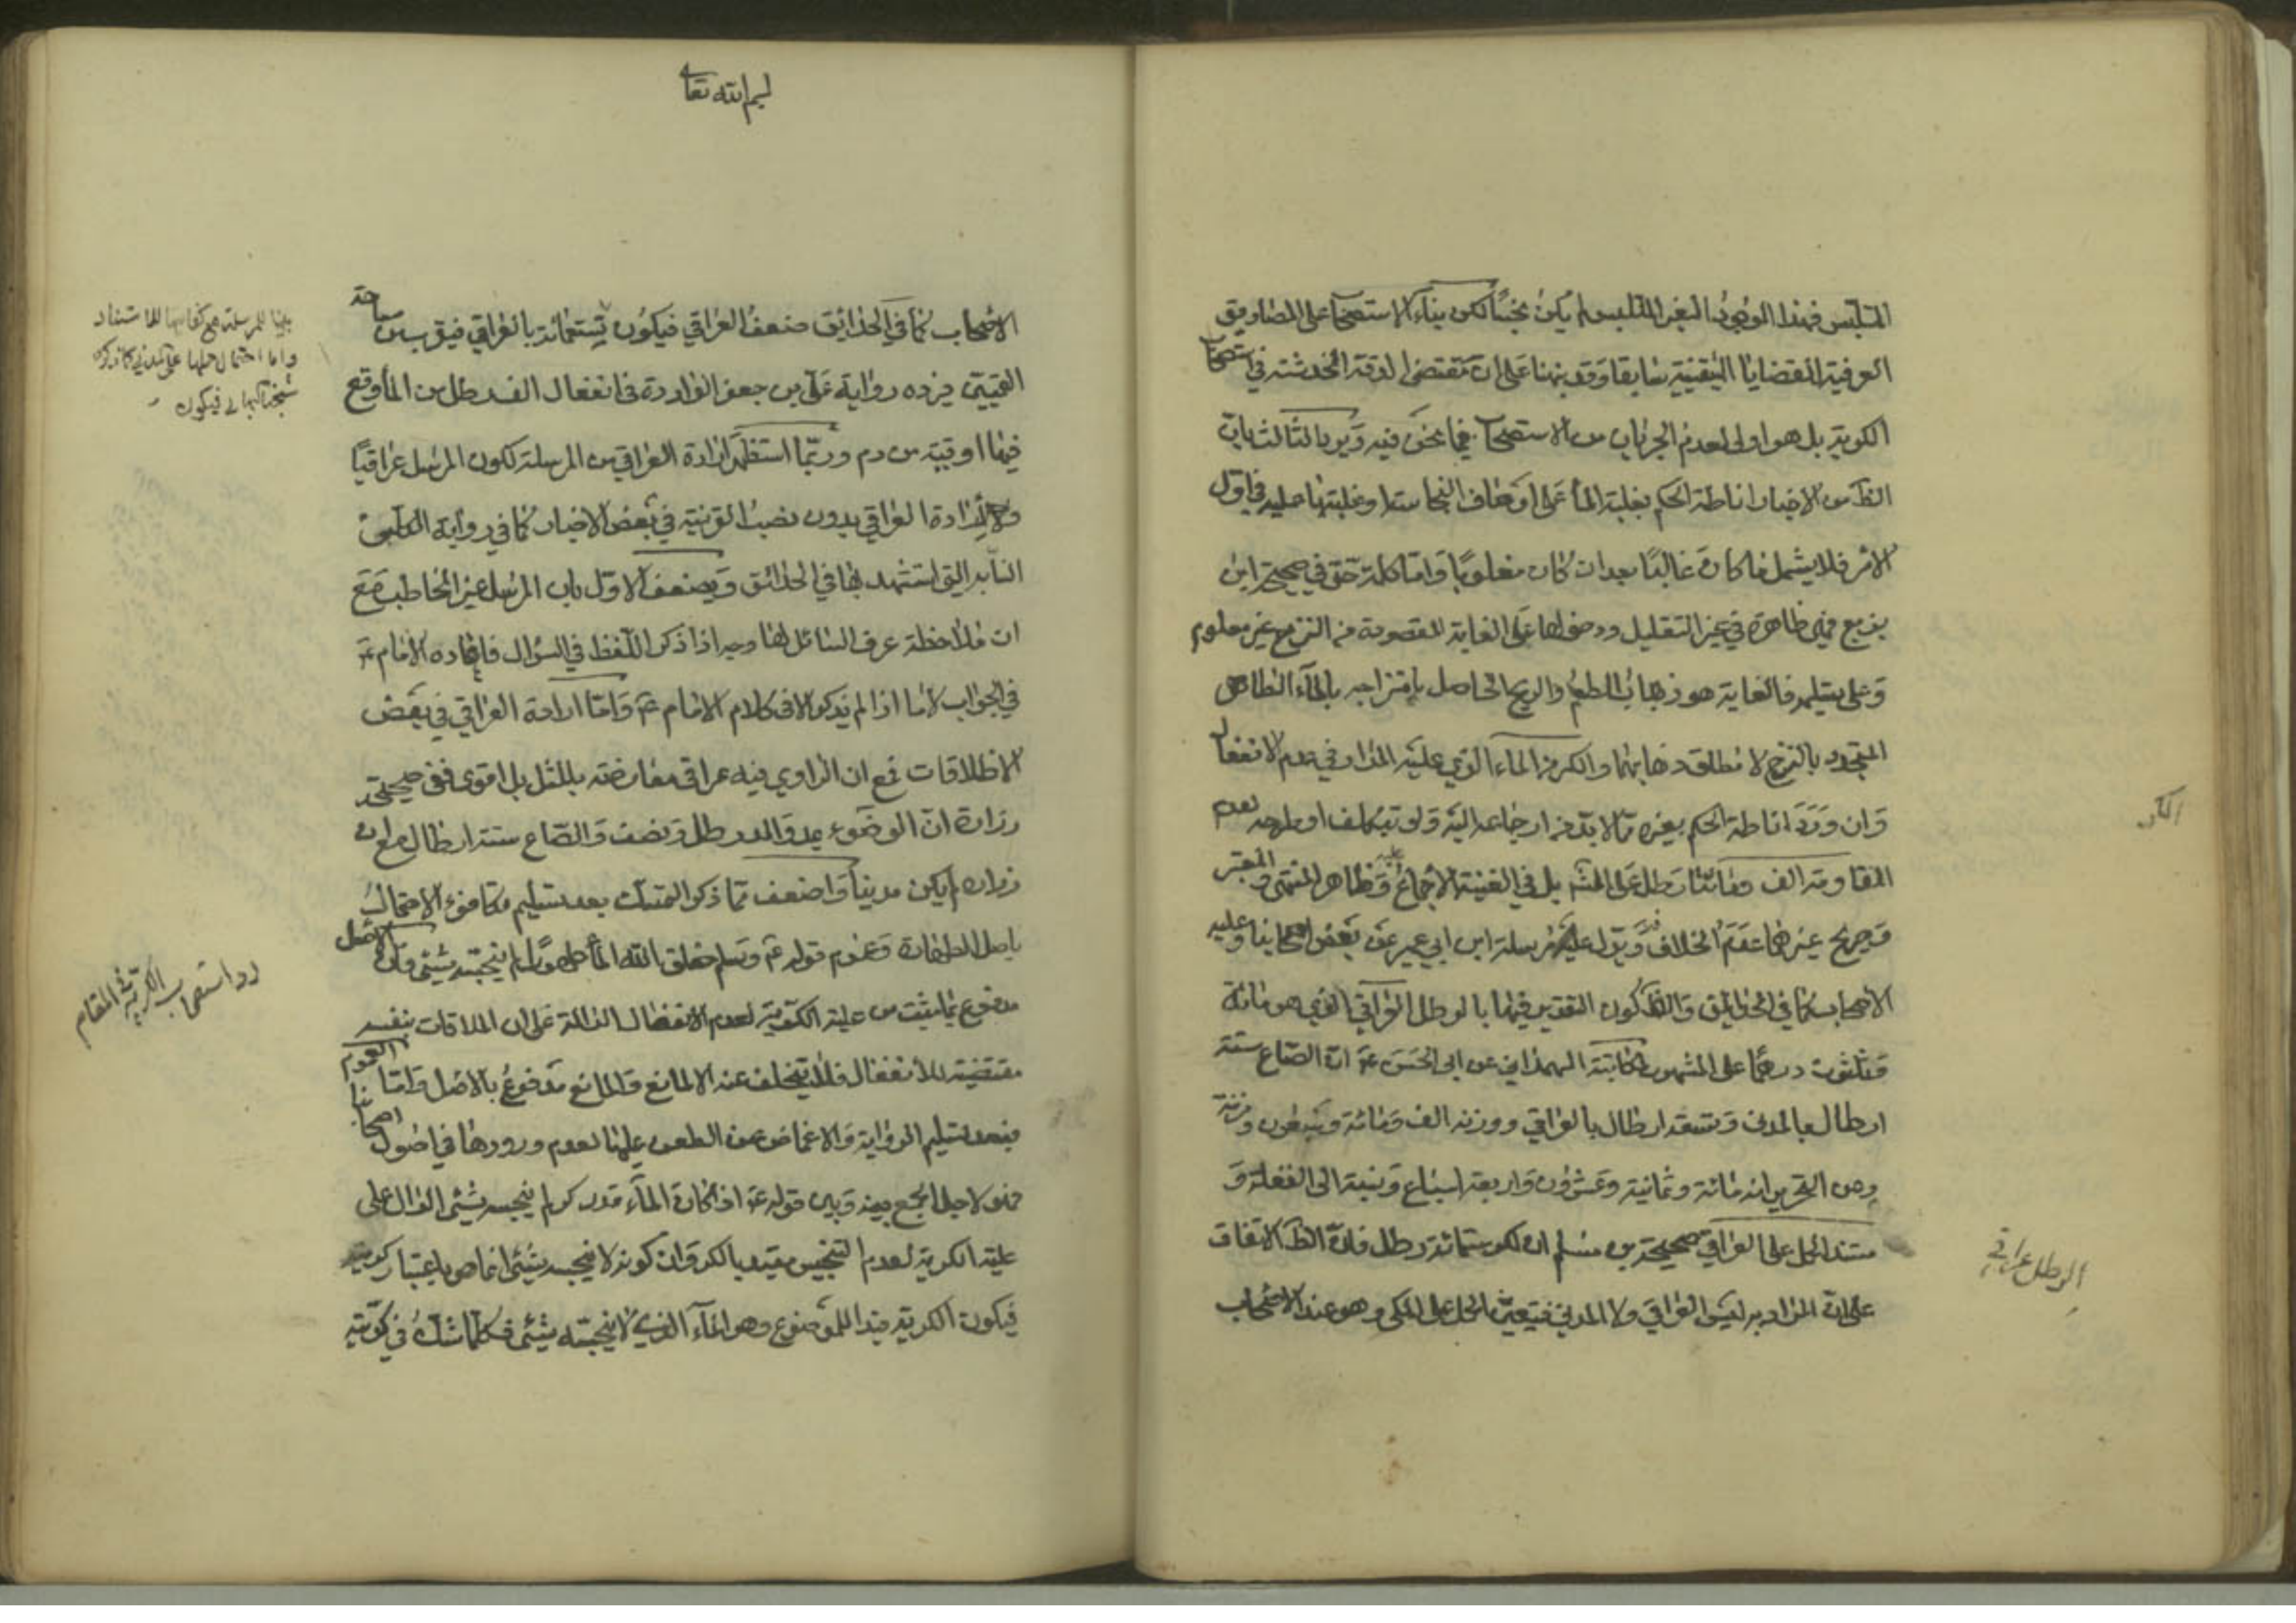 المتلبّس فهذا الوضوء الغير المتلبس لم يكن نجسًا لكن بناء الاستصحاب على المصاديق
العرفية للقضايا اليقينية سابقا وقد نبهنا على ان مقتضى الدقة الخدشة في استصحاب
الكرية بل هو اولى لعدم الجريان من الاستصحاب فيما نحن فيه ويرد الثالث بان
الظ من الاخبار اناطة الحكم بغلبة الماء على اوصاف النجاسة او غلبتها عليه في اول
الامر فلا يشمل ما كان غالبًا بعد ان كان مغلوبًا واما كلمة حتى في صحيحة ابن
بزيع فهي ظاهرة في غير التعليل ودخولها على الغاية المقصودة من النزح غير معلوم
وعلى تسليمه فالغاية هو ذهاب الطعم والريح الحاصل بامتزاجه بالماء الطاهر
المتجدد بالنزح لا مطلق ذهابهما والكر من الماء الذي عليه المدار في عدم الانفعال
وان ورد اناطة الحكم بغيره مما لابد من ارجاعه اليه ولو بتكلف او طرحه لعدم
المقاومة الف ومائتا رطل على المشهور بل في الغنية الاجماع عليه وظاهر المنتهى والمعتبر
وصريح غيرهما عدم الخلاف فيه ويدل عليه مرسلة ابن ابي عمير عن بعض اصحابنا وعليه
الاصحاب كما في الحدائق والظ كون التقدير فيها بالرطل العراقي الذي هو مائة
وثلثون درهما على المشهور لمكاتبة الهمداني عن ابي الحسن ع ان الصاع ستة
ارطال بالمدني وتسعة ارطال بالعراقي ووزنه الف ومائة وسبعون وزنة
وعن التحرير انه مائة وثمانية وعشرون واربعة اسباع ونسبه الى الغفلة و
مستند الحمل على العراقي صحيحة بن مسلم ان الكر ستمائة رطل فان الظ الاتفاق
على ان المراد به ليس العراقي ولا المدني فيتعين الحمل على المكي وهو عند الاصحاب
الكر
الرطل عراقي
بسم الله تعا
الاصحاب كما في الحدائق ضعف العراقي فيكون ستمائة بالعراقي فيقرب من مساحة
القميين ويرده رواية علي بن جعفر الواردة في انفعال الف رطل من الماء وقع
فيها اوقية من دم وربّما استظهر ارادة العراقي من المرسلة لكون المرسل عراقيًا
ولارادة العراقي بدون نصب القرينة في بعض الاخبار كما في رواية الكلبي
النسابة التي استشهد بها في الحدائق ويضعف الاول بان المرسل غير المخاطب مع
ان ملاحظة عرف السائل لها وجه اذا ذكر اللفظ في السؤال فاعاده الامام ع
في الجواب لا ما اذا لم يذكر الا في كلام الامام ع واما ارادة العراقي في بعض
الاطلاقات فمع ان الراوي فيه عراقي معارضة بالمثل بل اقوى ففي صحيحة
زرارة ان الوضوء بمد والمد رطل ونصف والصاع ستة ارطال مع ان
زراره لم يكن مدينا واضعف مما ذكر التمسك بعد تسليم تكافؤ الاحتمال
باصل الطهارة وعموم قوله ع وسلم خلق الله الماء طهورًا لم ينجسه شيئي فان الاصل
مدفوع بما يثبت من علية الكرية لعدم الانفعال الدالة على ان الملاقات بنفسه
مقتضية للانفعال فلا يتخلف عنه الا لمانع والمانع مدفوع بالاصل واما العموم
فبعد تسليم الرواية والاغماض عن الطعن عليها لعدم ورودها في اصول اصحابنا
فهو لاجل الجمع بينه وبين قوله ع اذا كان الماء قدر كر لم ينجسه شيئي الدال على
علية الكرية لعدم التنجيس مقيد بالكر وان كونه لا ينجسه شيئي انما هو باعتبار كريته
فيكون الكرية قيد الموضوع وهو الماء الذي لا ينجسه شيئي فكلما شك في كريته
بناء للمرسلة مع كفايتها لما استفاد
واما احتمال حملها على المدني كما ذكره
شيخنا البهائي فيكون
رد استصحاب الكرية في المقام